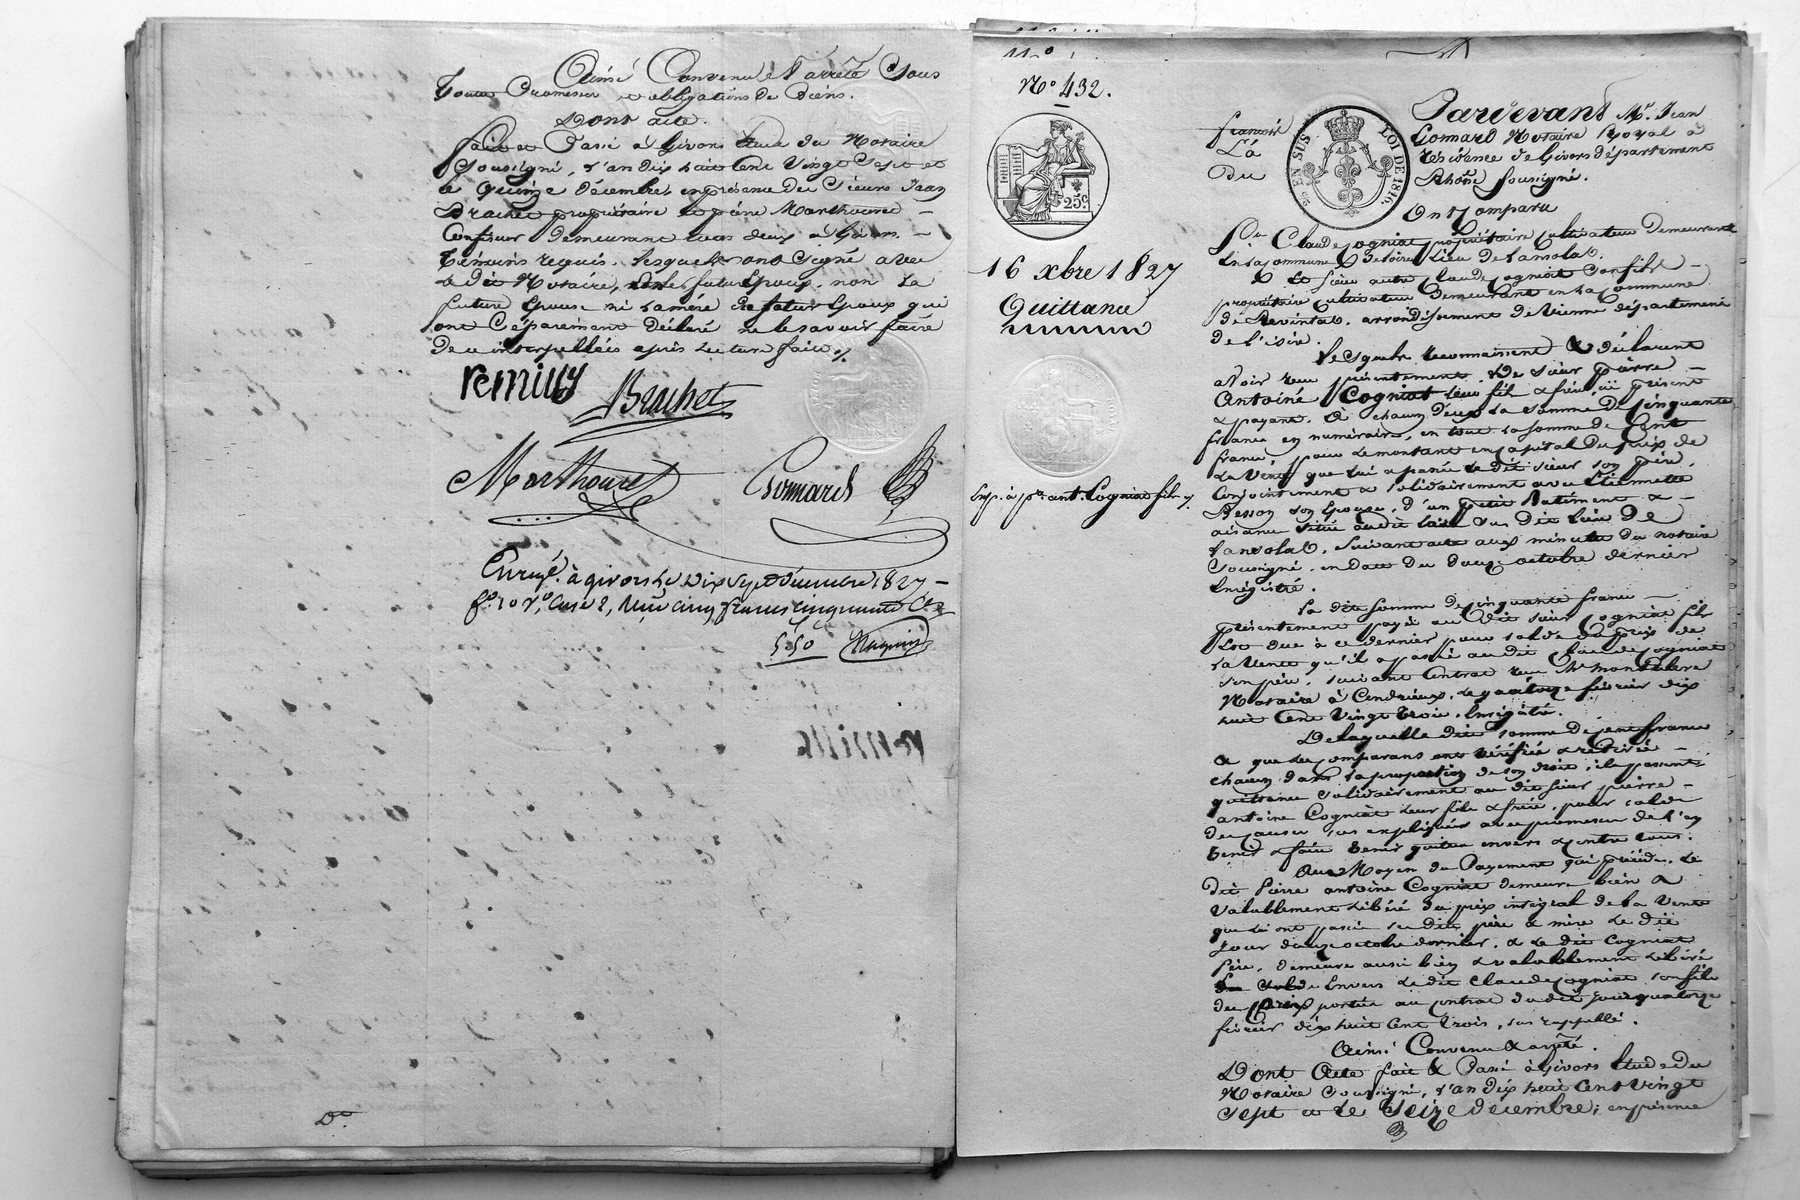 Ainsi Convenu et arrêté Sous
toutes Promesses et obligations de Biens.
Dont acte.
fait et Passé à Givors Etude du Notaire
Soussigné, l'an dix huit Cent Vingt Sept et
le quinze Décembre, en présence des Sieurs Jean
Brachet propriétaire et pierre Marthouret
Confiseur demeurant tous deux à Givors
témoins requis. lesquels ont signé avec
le dit Notaire, et le futur Epoux, non la
future Epouse ni la mère du futur Epoux qui
ont Séparément Déclaré ne le savoir faire
de ce interpellées après lecture faite
remilly
Brachet
Marthouret
Gonnard
Enregé. à givors le dix Sept décembre 1827
fo. 10 Vo, Case 2, Reçu cinq francs cinquante Ces
5.50
Do.
No. 432.
25c.
EN SUS LOI DE 1816.
16 xbre 1827
Quittance
Exp. à pre. ant. Cogniat fils
Pardevant Me. Jean
Gonnard Notaire Royal à
résidence de Givors département
Du Rhône soussigné.
Ont Comparu
Sr. Claude Cogniat propriétaire Cultivateur Demeurant
en la commune de Loire Lieu de
Et Sieur autre Claude Cogniat Son fils
propriétaire Cultivateur Demeurant en la Commune
de Reventin, arrondissement de Vienne département
de l'isère.
Lesquels reconnaissent & déclarent
avoir reçu présentement De sieur pierre
Antoine Cogniat leur fils & frère ici présent
& payant, à chacun d'eux la somme de Cinquante
francs en numéraire, en tout la somme de Cent
francs, pour le montant en capital du prix de
la Vente que lui a passée le dit sieur son père,
Conjointement & solidairement avec Etiennette
Besson son épouse, d'un petit Batiment &
aisances situé au dit Loire Sus dit lieu De
suivant acte aux minutes du notaire
Soussigné, en date du douze octobre dernier
Enrégistré.
La dite somme de Cinquante francs
présentement payée au dit sieur Cogniat fils
Est due à ce dernier pour solde du prix de
la Vente qu'il a passé au dit Claude Cogniat
son père, suivant Contrat reçu Me
Notaire à Condrieux, le quatorze février dix
huit Cent Vingt trois, Enrégistré.
De laquelle dite somme de Cent francs
que les Comparans ont Vérifiée & retirée
chacun dans la proportion de son droit, ils passent
quittance solidairement au dit sieur pierre
antoine Cogniat leur fils & frère, pour solde
des causes sus expliquées avec promesse de l'en
tenir & faire tenir quitte envers & contre tous.
Au Moyen du Payement qui précède, Le
dit Pierre antoine Cogniat demeure bien &
Valablement Libéré du prix intégral de la Vente
que lui ont passée ses dits père & mère le dit
Jour douze octobre dernier, & le dit Cogniat
Père, demeure aussi bien & valablement Libéré
Envers le dit Claude Cogniat son fils
du prix porté au Contrat du dit jour quatorze
février dix huit Cent trois, sus rappellé.
Ainsi Convenu & arrêté.
Dont Acte fait & Passé à Givors Etude Du
Notaire Soussigné, l'an Dix huit Cent Vingt
Sept et le Seize decembre; en présence